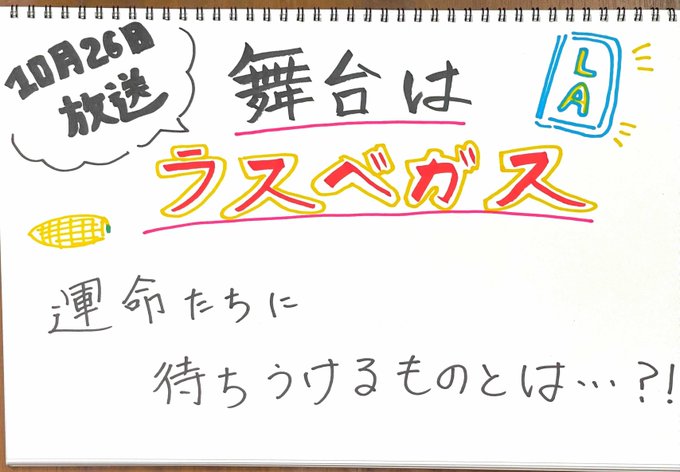 10月26日
放送
舞台は
LA
ラスベガス
運命たちに
待ちうけるものとは…?!